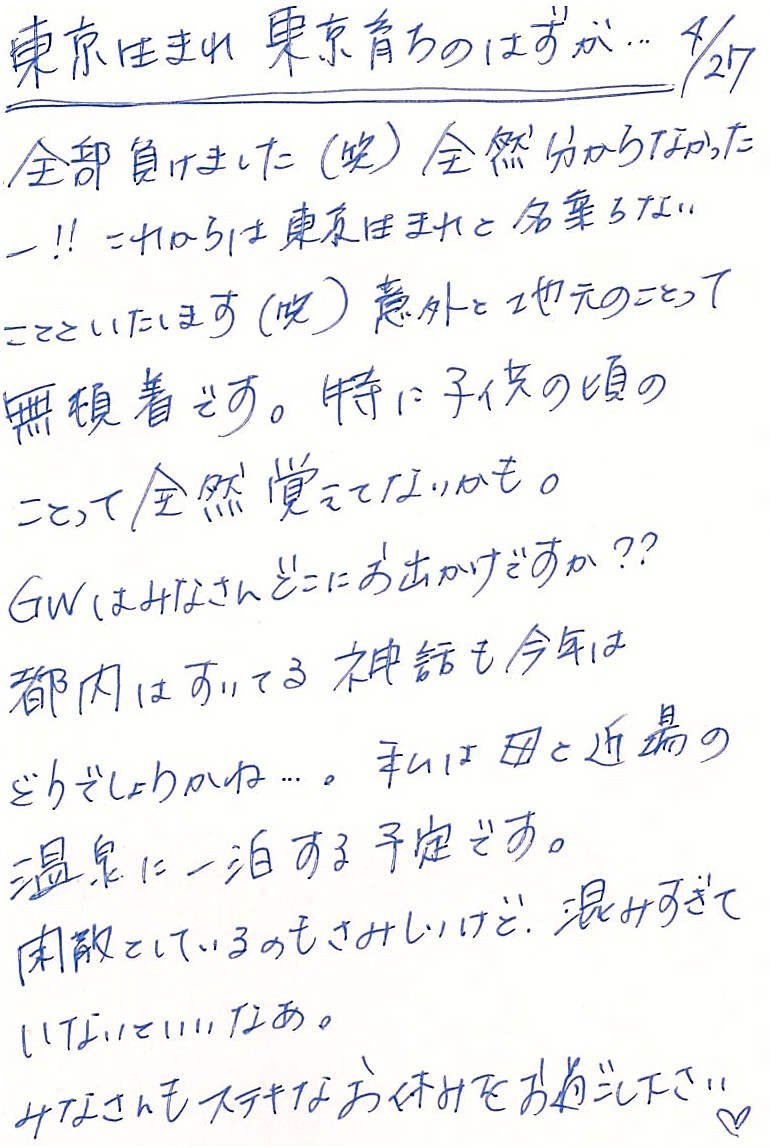 東京生まれ 東京育ちのはずが… 4/27
全部負けました(笑) 全然分からなかった
ー!! これからは東京生まれと名乗らない
ことといたします(笑) 意外と地元のことって
無頓着です。特に子供の頃の
ことって全然覚えてないかも。
GWはみなさんどこにお出かけですか??
都内はすいてる神話も今年は
どうでしょうかね…。私は母と近場の
温泉に一泊する予定です。
閑散としているのもさみしいけど、混みすぎて
いないといいなあ。
みなさんもステキなお休みをお過ごし下さい♡